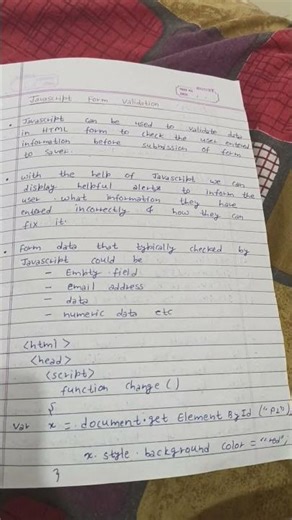 Javascript Form Validation
• Javascript can be used to validate data
in HTML form to check the user entered
information before submission of form
to saver.
• With the help of Javascript we can
display helpful alerts to inform the
user what information they have
entered incorrectly & how they can
fix it.
• form data that typically checked by
Javascript could be
- Empty field
- email address
- data
- numeric data etc
<html>
<head>
<script>
function change ()
{
Var x = document.get Element By Id ("P1"),
x. style. background color = "red",
}